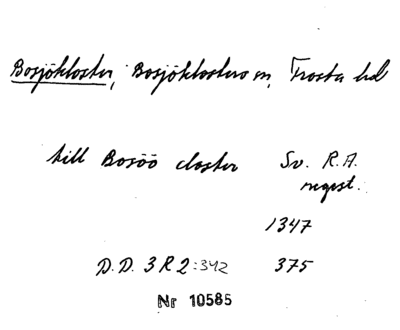 Bosjökloster, Bosjöklosters sn, Frosta hd
till Bosöö closter Sv. R.A.
regest.
1347
D.D. 3 R 2:342 375
Nr 10585